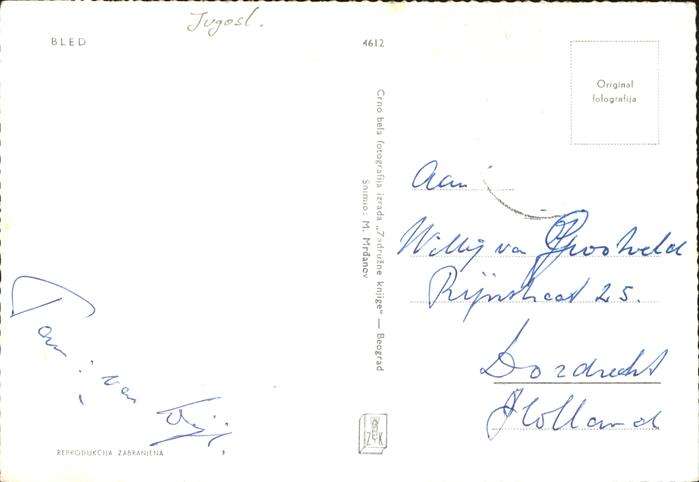 Jugosl.
BLED
4612
Original
fotografija
Crno bela fotografija izrada „Zadružne knjige" — Beograd
Snimio: M. Mrđanov
Aan
Willy van Grootveld
Rijnstraat 25.
Dordrecht
Holland
van
REPRODUKCIJA ZABRANJENA
ZK